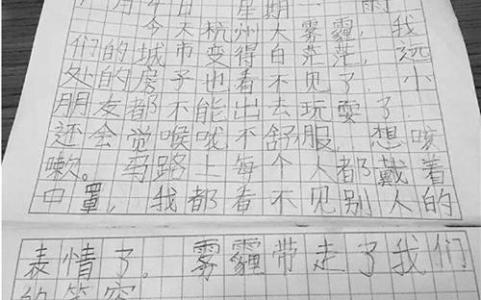 月 日 星期一 雨
今天杭州大雾霾，我
们的城市变得白茫茫，远
处的房子也看不见了。小
朋友都不能出去玩耍了。
还会觉喉咙不舒服，想咳
嗽。马路上每个人都戴着
中罩，我都看不见别人的
表情了。雾霾带走了我们
的笑容